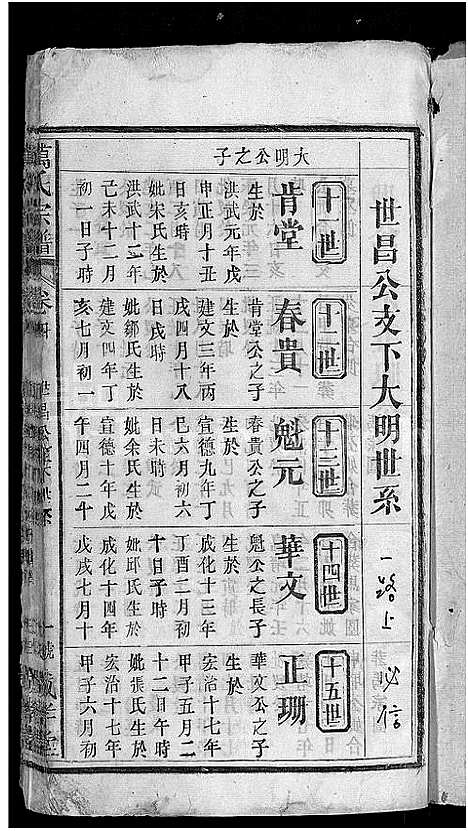 世昌公支下大明世系
一路上 必信
大明公之子
十一世
肯堂
生於
洪武元年戊
申正月十丑
日亥時
妣宋氏生於
洪武十二年
己未十二月
初一日子時
十二世
春貴
肯堂公之子
生於
建文三年丙
戌四月十八
日戌時
妣鄒氏生於
建文四年丁
亥七月初一
十三世
魁元
春貴公之子
生於
宣德九年丁
巳六月初六
日未時
妣余氏生於
宣德十年戊
午四月二十
十四世
華文
魁公之長子
生於
成化十三年
丁酉二月初
十日子時
妣邱氏生於
成化十四年
戊戌七月十
十五世
正珊
華文公之子
生於
宏治十七年
甲子五月二
十二日午時
妣張氏生於
宏治十七年
甲子六月初
萬氏宗譜